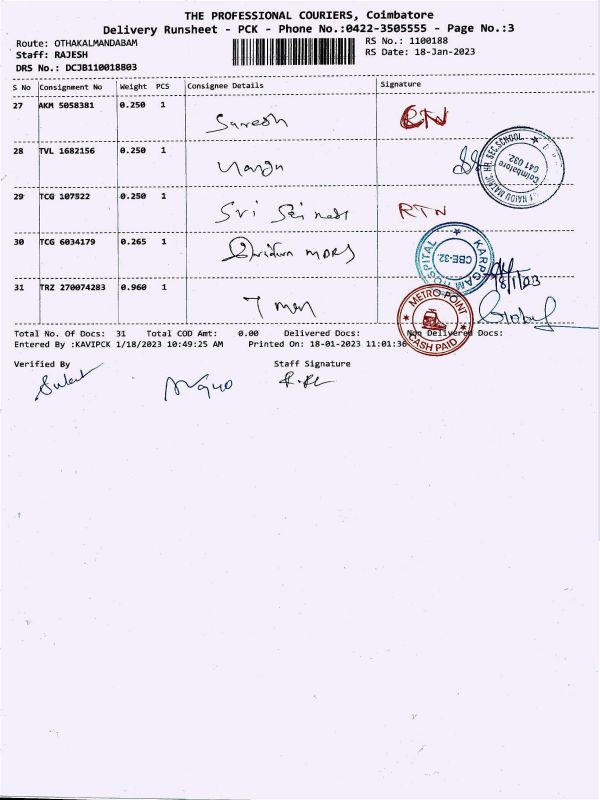 THE PROFESSIONAL COURIERS, Coimbatore
Delivery Runsheet - PCK - Phone No.:0422-3505555 - Page No.:3
Route: OTHAKALMANDABAM RS No.: 1100188
Staff: RAJESH RS Date: 18-Jan-2023
DRS No.: DCJB110018803
S No Consignment No Weight PCS Consignee Details Signature
27 AKM 5058381 0.250 1 Suresh RTN
28 TVL 1682156 0.250 1
HR.SEC.SCHOOL Coimbatore 641 032.
29 TCG 107522 0.250 1 Sri RTN
30 TCG 6034179 0.265 1
KARPGAM HOSPITAL CBE-32.
31 TRZ 270074283 0.960 1
METRO POINT CASH PAID
Total No. Of Docs: 31 Total COD Amt: 0.00 Delivered Docs: Non Delivered Docs:
Entered By :KAVIPCK 1/18/2023 10:49:25 AM Printed On: 18-01-2023 11:01:36
Verified By Staff Signature